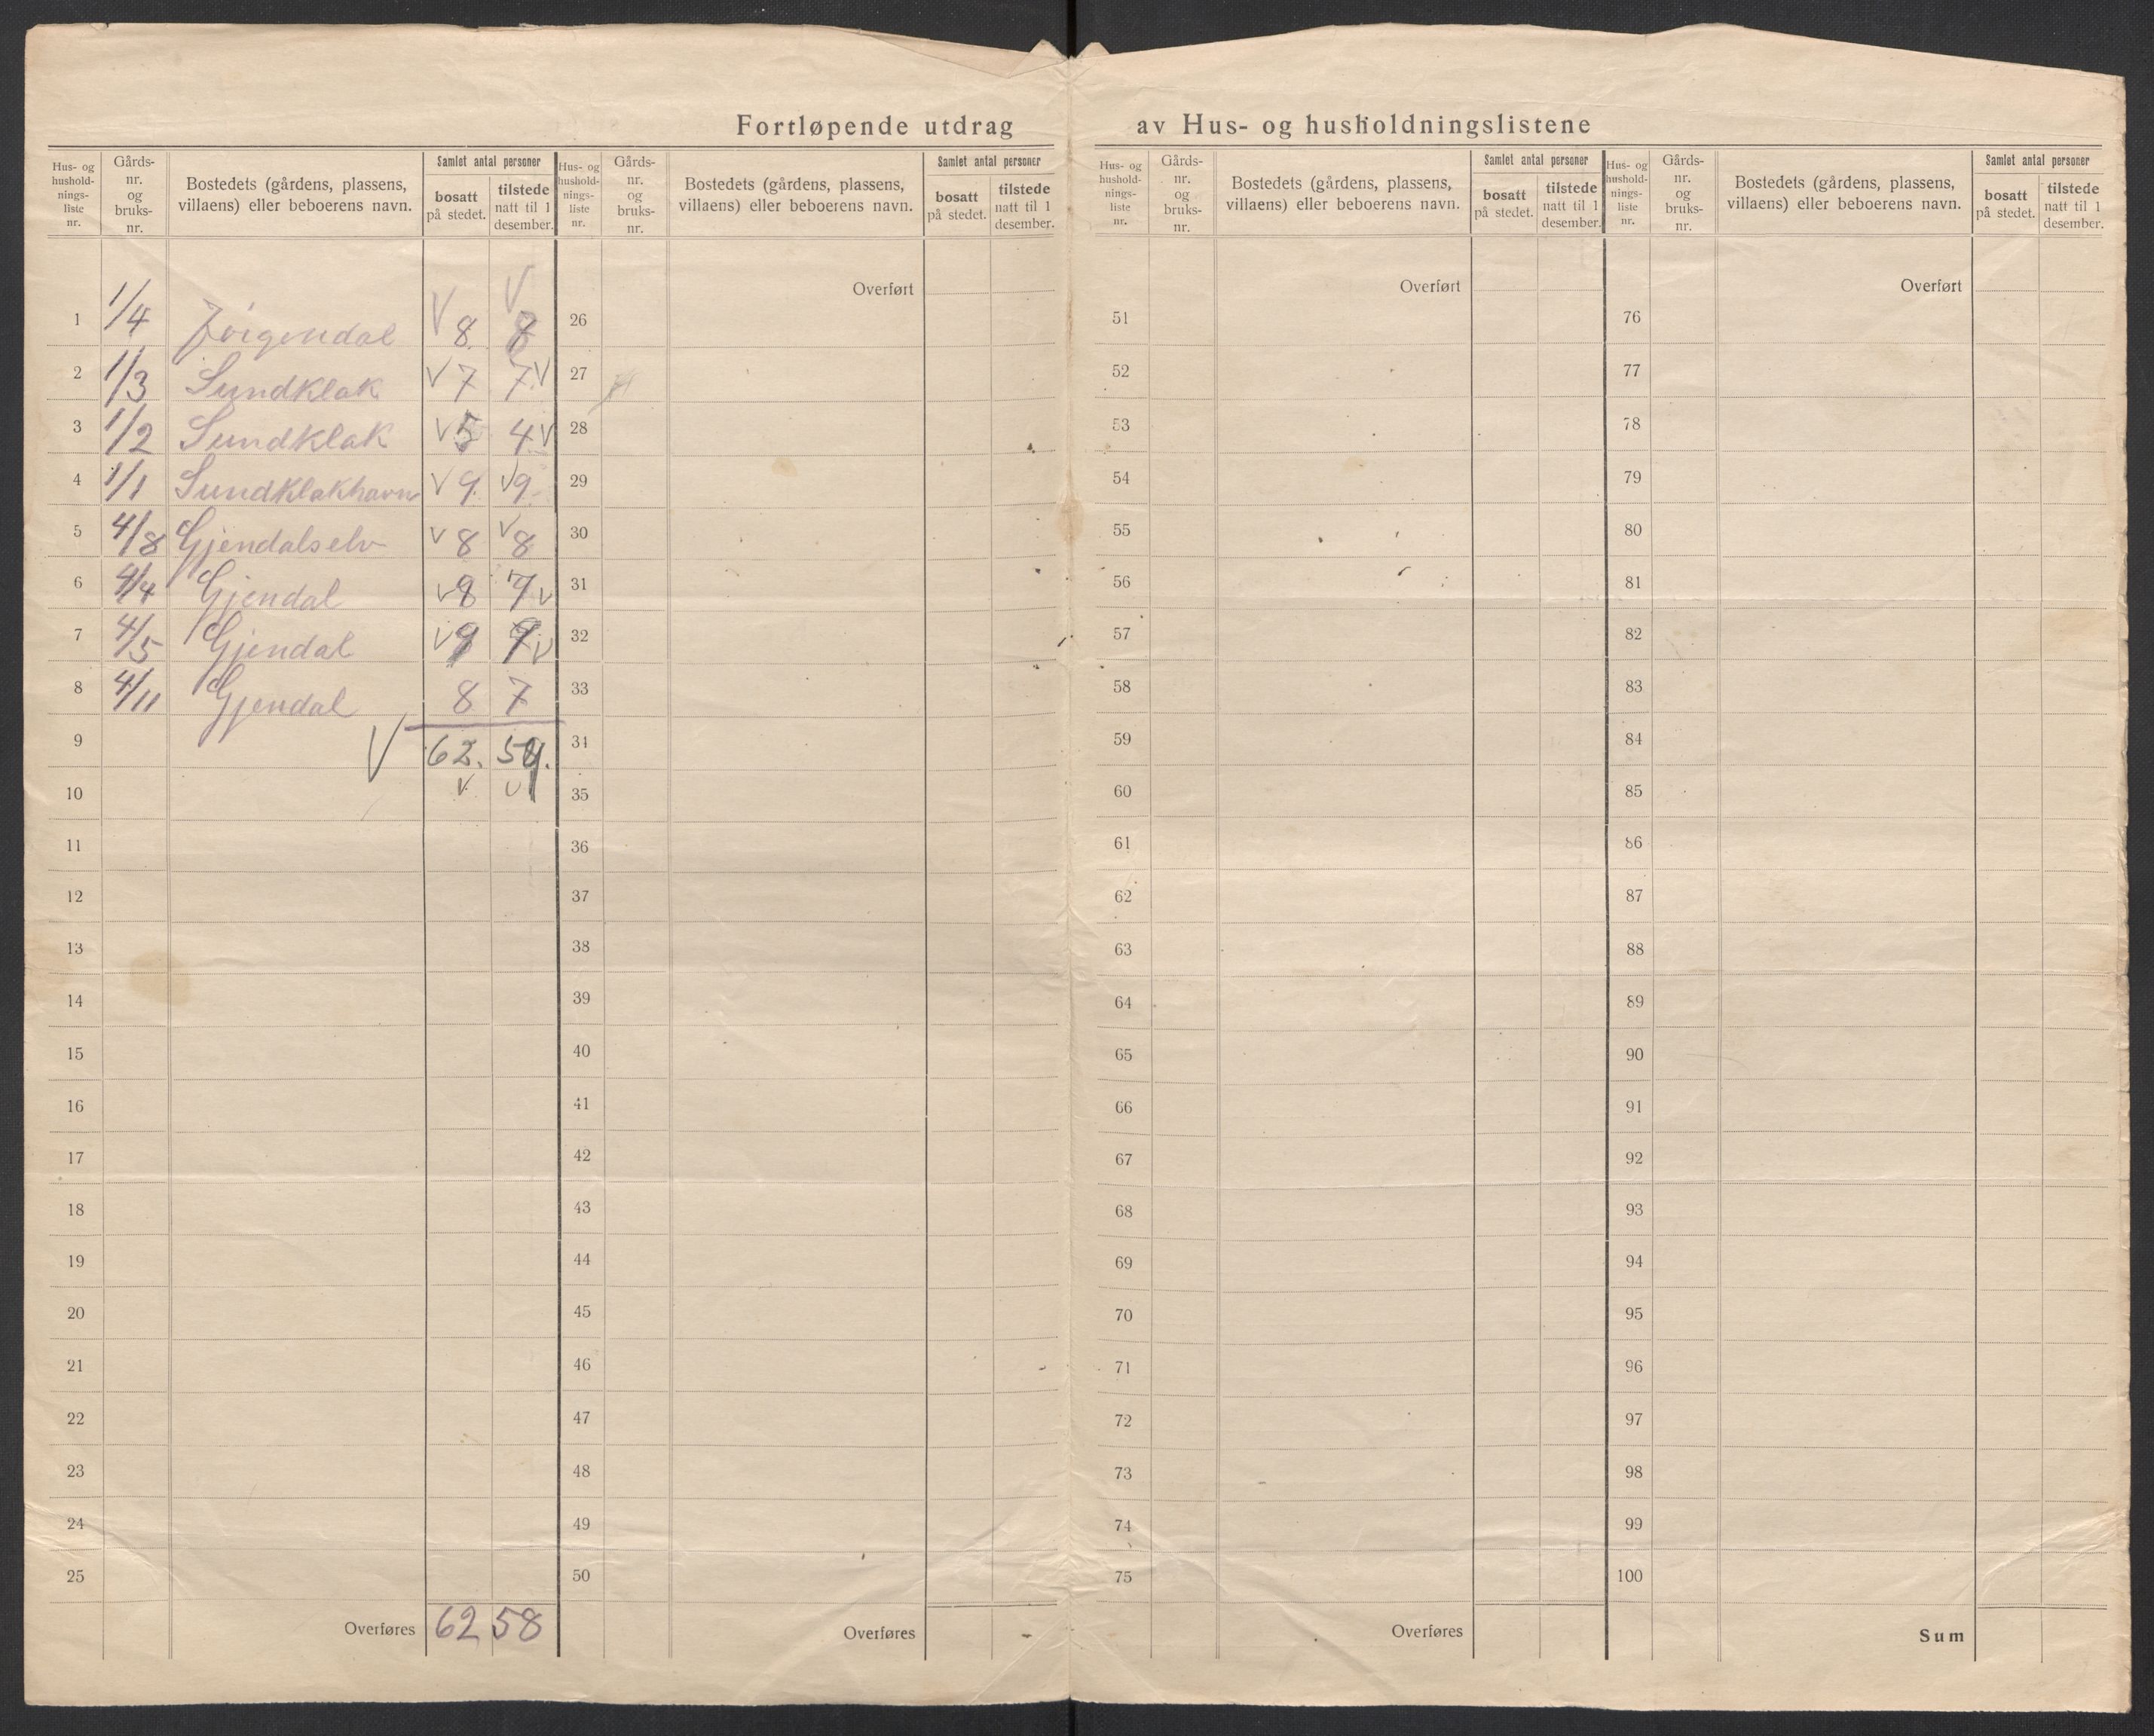 Fortløpende utdrag av Hus- og husholdningslistene
Hus- og hushold-nings-liste nr. Gårds-nr. og bruks-nr. Bostedets (gårdens, plassens, villaens) eller beboerens navn. Samlet antal personer bosatt på stedet. tilstede natt til 1 desember.
Hus- og hushold-nings-liste nr. Gårds-nr. og bruks-nr. Bostedets (gårdens, plassens, villaens) eller beboerens navn. Samlet antal personer bosatt på stedet. tilstede natt til 1 desember.
Hus- og hushold-nings-liste nr. Gårds-nr. og bruks-nr. Bostedets (gårdens, plassens, villaens) eller beboerens navn. Samlet antal personer bosatt på stedet. tilstede natt til 1 desember.
Hus- og hushold-nings-liste nr. Gårds-nr. og bruks-nr. Bostedets (gårdens, plassens, villaens) eller beboerens navn. Samlet antal personer bosatt på stedet. tilstede natt til 1 desember.
Overført Overført Overført
1 1/4 V 8 V 8 26 51 76
2 1/3 Sundklak V 7 7 V 27 52 77
3 1/2 Sundklak V 5 4 V 28 53 78
4 1/1 Sundklakhavn V 9 V 9 29 54 79
5 4/8 Gjendalselv V 8 V 8 30 55 80
6 4/4 Gjendal V 8 7 V 31 56 81
7 4/5 Gjendal V 9 V 32 57 82
8 4/11 Gjendal 8 7 33 58 83
9 V 62. 34 59 84
10 V V 35 60 85
11 36 61 86
12 37 62 87
13 38 63 88
14 39 64 89
15 40 65 90
16 41 66 91
17 42 67 92
18 43 68 93
19 44 69 94
20 45 70 95
21 46 71 96
22 47 72 97
23 48 73 98
24 49 74 99
25 50 75 100
Overføres 62 58 Overføres Overføres Sum